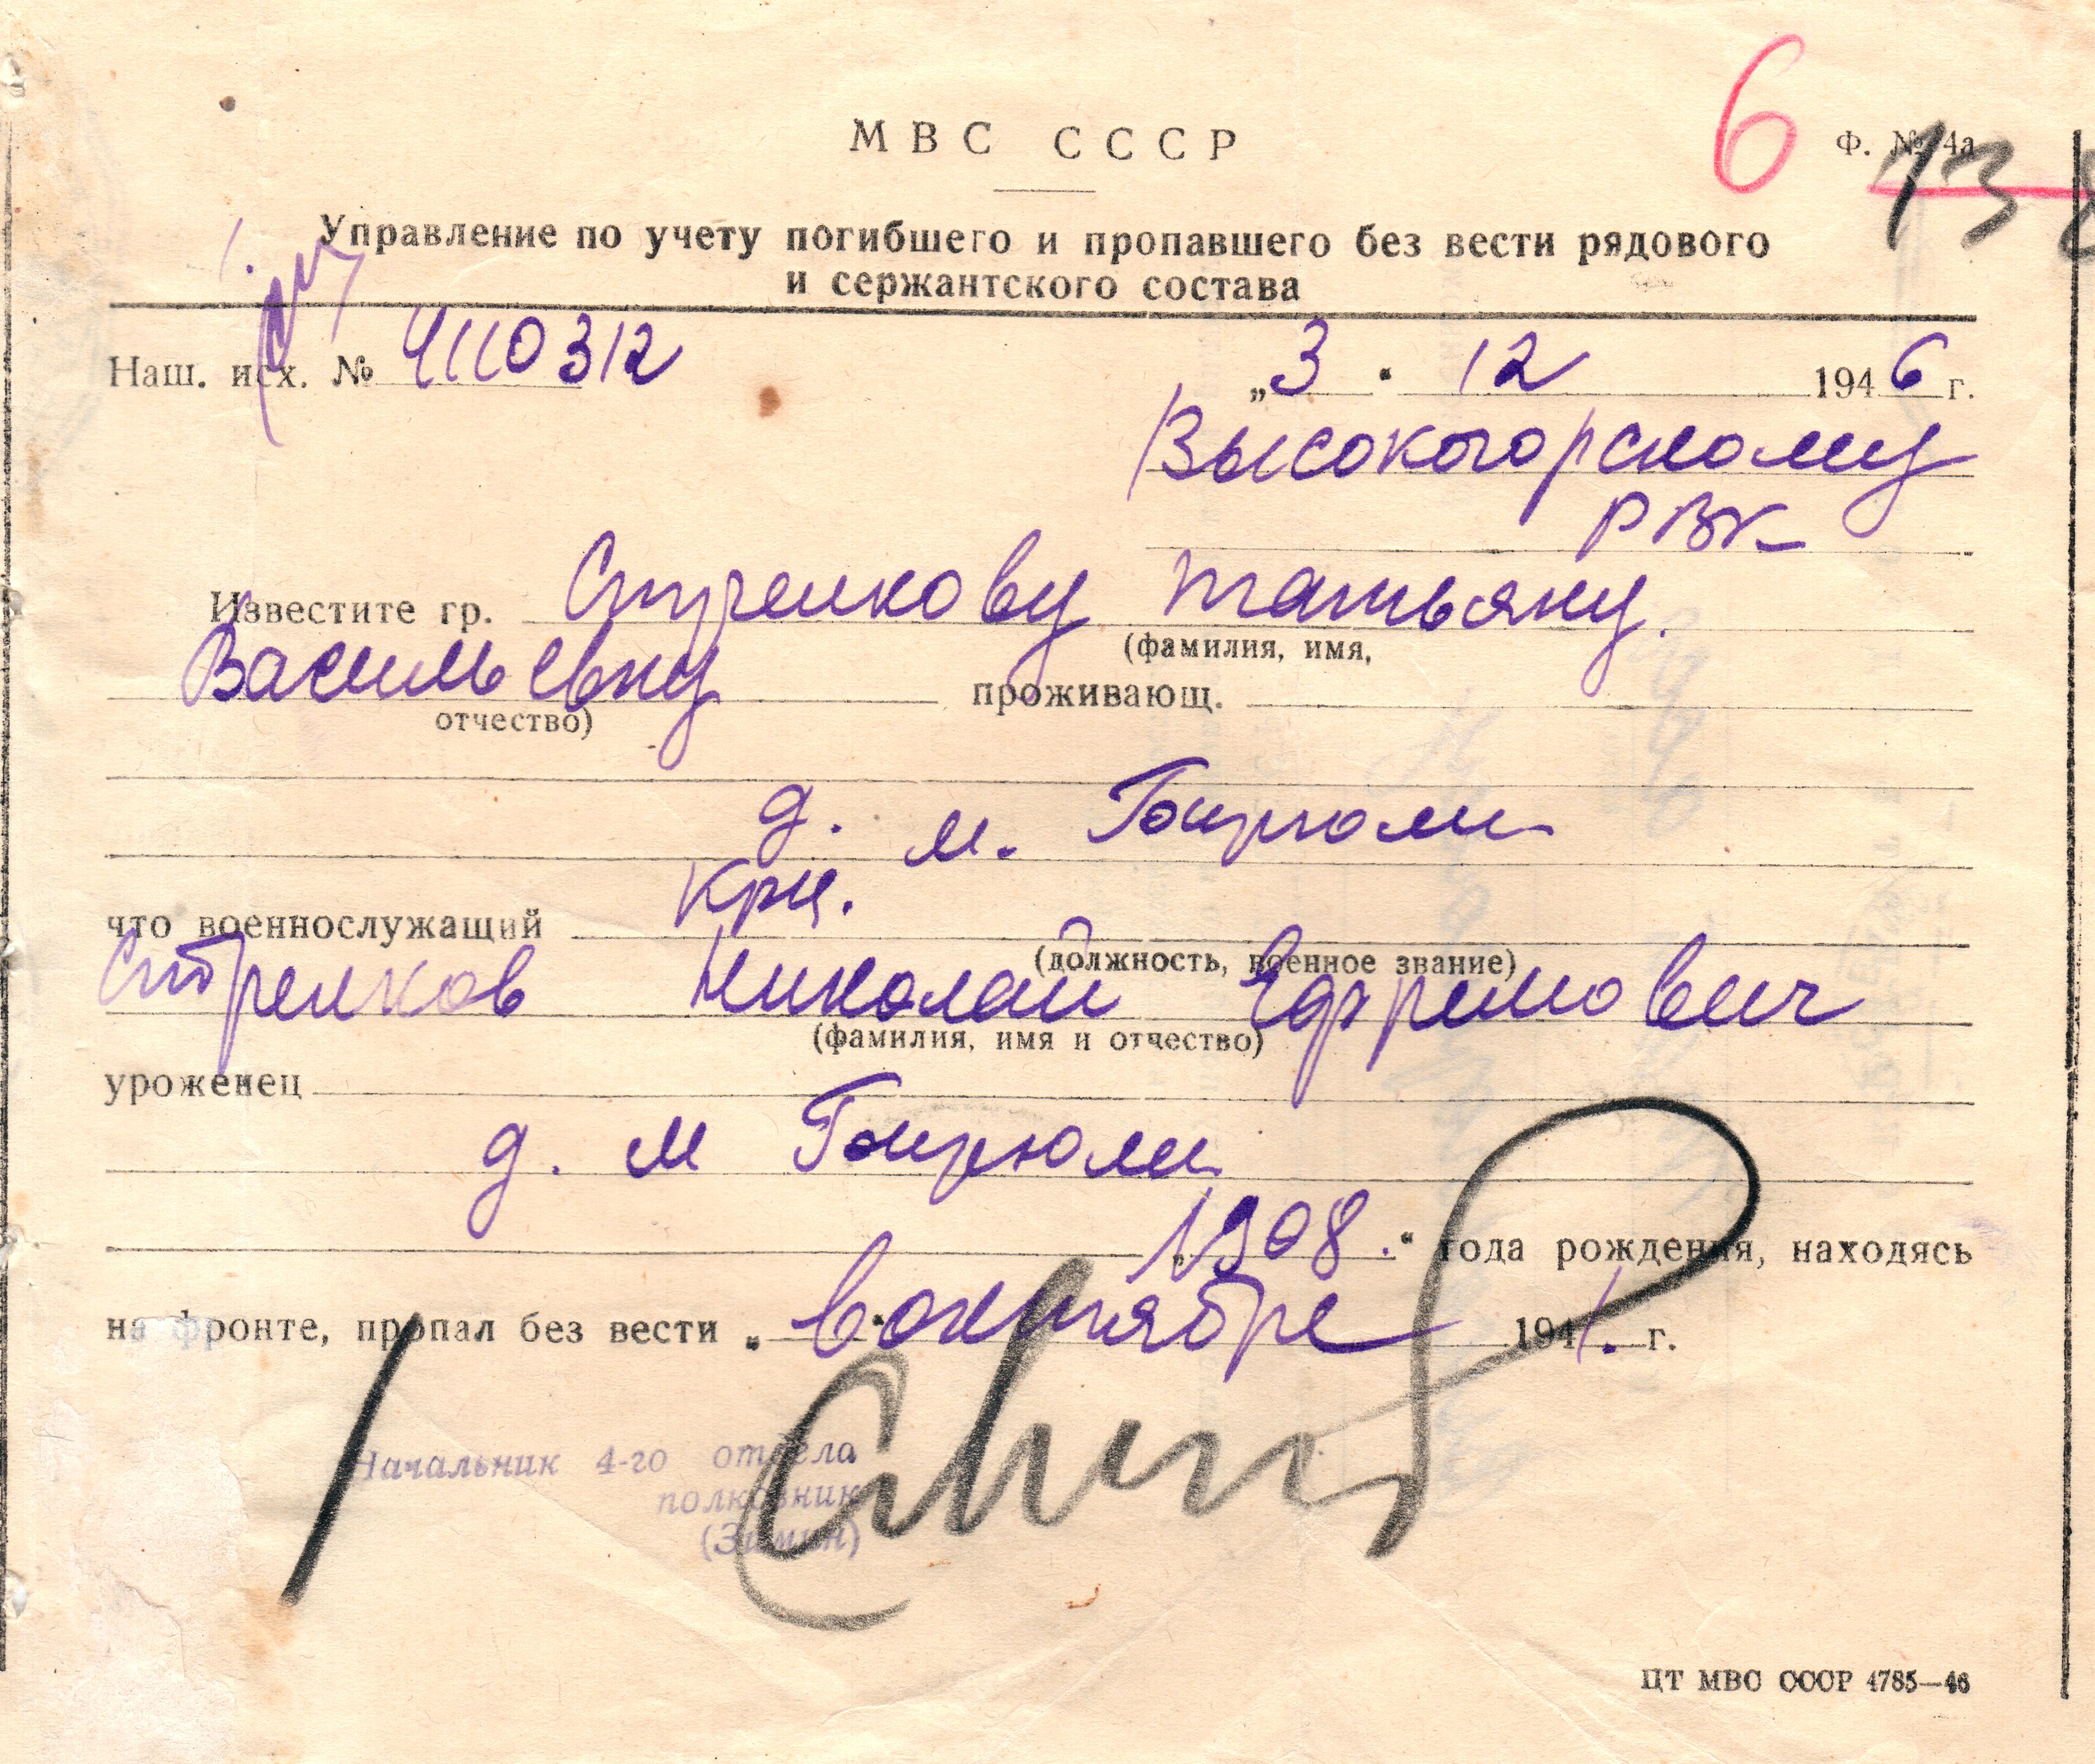 МВС СССР
6
Ф. № 4а
13
Управление по учету погибшего и пропавшего без вести рядового
и сержантского состава
Наш. исх. № 4/110312
„3“ 12 1946 г.
Высокогорскому
РВК
Известите гр. Стрелкову Татьяну
(фамилия, имя,
Васильевну проживающ.
отчество)
д. м. Бирюли
что военнослужащий кр-ц.
(должность, военное звание)
Стрелков Николай Ефримович
(фамилия, имя и отчество)
уроженец
д. м Бирюли
„1908.“ года рождения, находясь
на фронте, пропал без вести „ “ в октябре 1941. г.
Начальник 4-го отдела
полковник
(Зимин)
ЦТ МВС СССР 4785—46